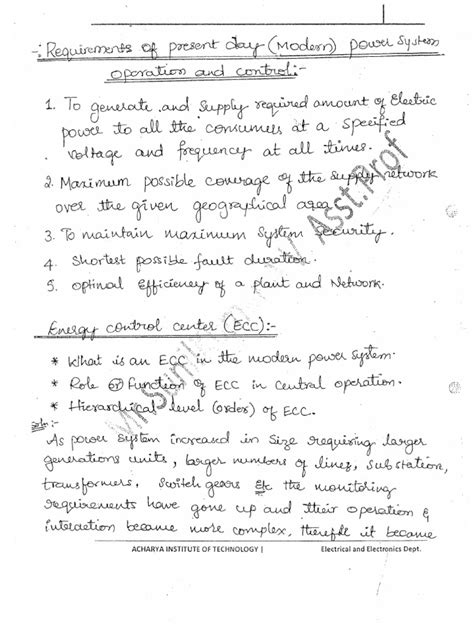 -: Requirements of present day (Modern) power System
operation and control:-
1. To generate and Supply required amount of Electric
power to all the consumers at a specified
voltage and frequency at all times.
2. Maximum possible coverage of the supply network
over the given geographical area.
3. To maintain maximum System Security.
4. Shortest possible fault duration.
5. optimal Efficiency of a plant and Network.
Energy control center (ECC):-
* What is an ECC in the modern power System.
* Role or Function of ECC in central operation.
* Hierarchical level (order) of ECC.
Soln:-
As power System increased in Size requiring larger
generations units, larger numbers of lines, Substation,
transformers, Switch gears etc the monitoring
requirements have gone up and their operation &
interaction became more complex, therefore it became
ACHARYA INSTITUTE OF TECHNOLOGY |
Electrical and Electronics Dept.
Asst.Prof